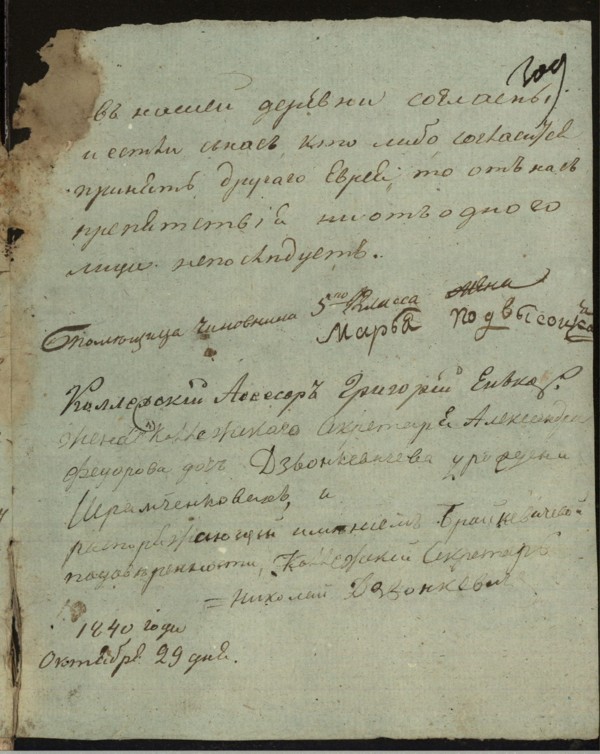 въ нашей деревни согласны,
и естли снасъ кто либо согласится
принять другаго Еврея, то отъ насъ
препятствія ни отъ одного
лица непоследуетъ.
чиновника 5го Класса жена
Марья Подвысоцкая
Коллежскій Асесоръ Григорій
Жена Коллежскаго Секретаря Александра
Федорова дочь Дзвонкевичева урожденна
Шрамченковыхъ, и
распоряжающій имѣніемъ Брайкевичевой
по доверенности, Коллежскій Секретарь
Николай Дзвонкевич
1840 года
Октября 29 дня.